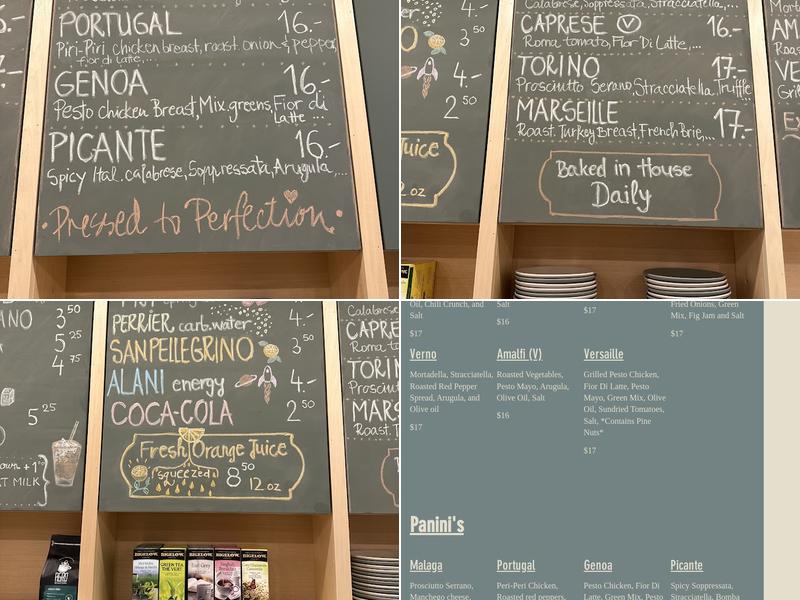 PORTUGAL 16.-
Piri-Piri chicken breast, roast. onion & pepper,
fior di latte,...
GENOA 16.-
Pesto chicken Breast, Mix greens, Fior di
Latte ...
PICANTE 16.-
Spicy Ital. calabrese, Soppressata, Arugula,...
Pressed to Perfection.
CAPRESE V 16.-
Roma tomato, Fior Di Latte,...
TORINO 17.-
Prosciutto Serano, Stracciatella, Truffle
MARSEILLE 17.-
Roast. Turkey Breast, French Brie,...
Baked in House
Daily
3 50
4.-
2 50
Juice
2 oz
ANO 3 50
5 25
4 75
5 25
AT MILK
4.-
PERRIER carb. water
SANPELLEGRINO 3 50
ALANI energy 4.-
COCA-COLA 2 50
Fresh Orange Juice
squeezed 8 50
12 oz
Calabrese,
CAPRE
Roma to
TORIN
Prosciut
MARS
Roast.
BIGELOW BIGELOW BIGELOW BIGELOW BIGELOW
GREEN TEA
Earl Grey
English Breakfast
Oil, Chili Crunch, and
Salt
$17
Salt
$16
$17
Fried Onions, Green
Mix, Fig Jam and Salt
$17
Verno
Mortadella, Stracciatella,
Roasted Red Pepper
Spread, Arugula, and
Olive oil
$17
Amalfi (V)
Roasted Vegetables,
Pesto Mayo, Arugula,
Olive Oil, Salt
$16
Versaille
Grilled Pesto Chicken,
Fior Di Latte, Pesto
Mayo, Green Mix, Olive
Oil, Sundried Tomatoes,
Salt, *Contains Pine
Nuts*
$17
Panini's
Malaga
Prosciutto Serrano,
Manchego cheese,
Portugal
Peri-Peri Chicken,
Roasted red peppers,
Genoa
Pesto Chicken, Fior Di
Latte, Pesto Mayo,
Picante
Spicy Soppressata,
Stracciatella, Bomba